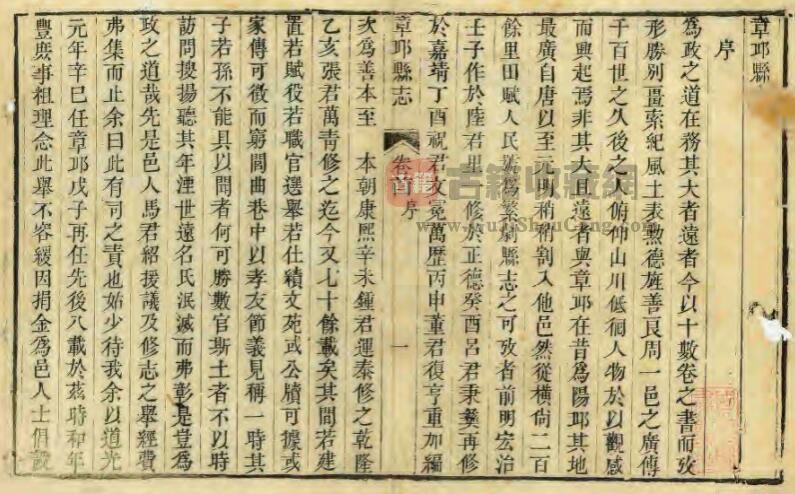 章邱縣
序
為政之道在務其大者遠者今以十數卷之書而攷
形勝別畺索紀風土表勲德旌善良周一邑之廣傳
千百世之久後之人俯仰山川低徊人物於以觀感
而興起焉非其大且遠者與章邱在昔為陽邱其地
最廣自唐以至元明稍稍割入他邑然從橫尙二百
餘里田賦人民號為繁劇縣志之可攷者前明宏治
壬子作於陸君里 修於正德癸酉呂君秉彝再修
於嘉靖丁酉祝君文冕萬歷丙申董君復亨重加編
章邱縣志 卷首 序 一
次為善本至 本朝康熙辛未鍾君運泰修之乾隆
乙亥張君萬青修之迄今又七十餘載矣其間若建
置若賦役若職官選舉若仕績文苑或公牘可據或
家傳可徵而窮閭曲巷中以孝友節義見稱一時其
子若孫不能具以聞者何可勝數官斯土者不以時
訪問搜揚聽其年湮世遠名氏泯滅而弗彰是豈為
政之道哉先是邑人馬君紹援議及修志之舉經費
弗集而止余曰此有司之責也姑少待我余以道光
元年辛巳任章邱戊子再任先後八載於茲時和年
豐庶事粗理念此舉不容緩因捐金為邑人士倡設
古籍
古籍收藏網
www.GuJiShouCang.com